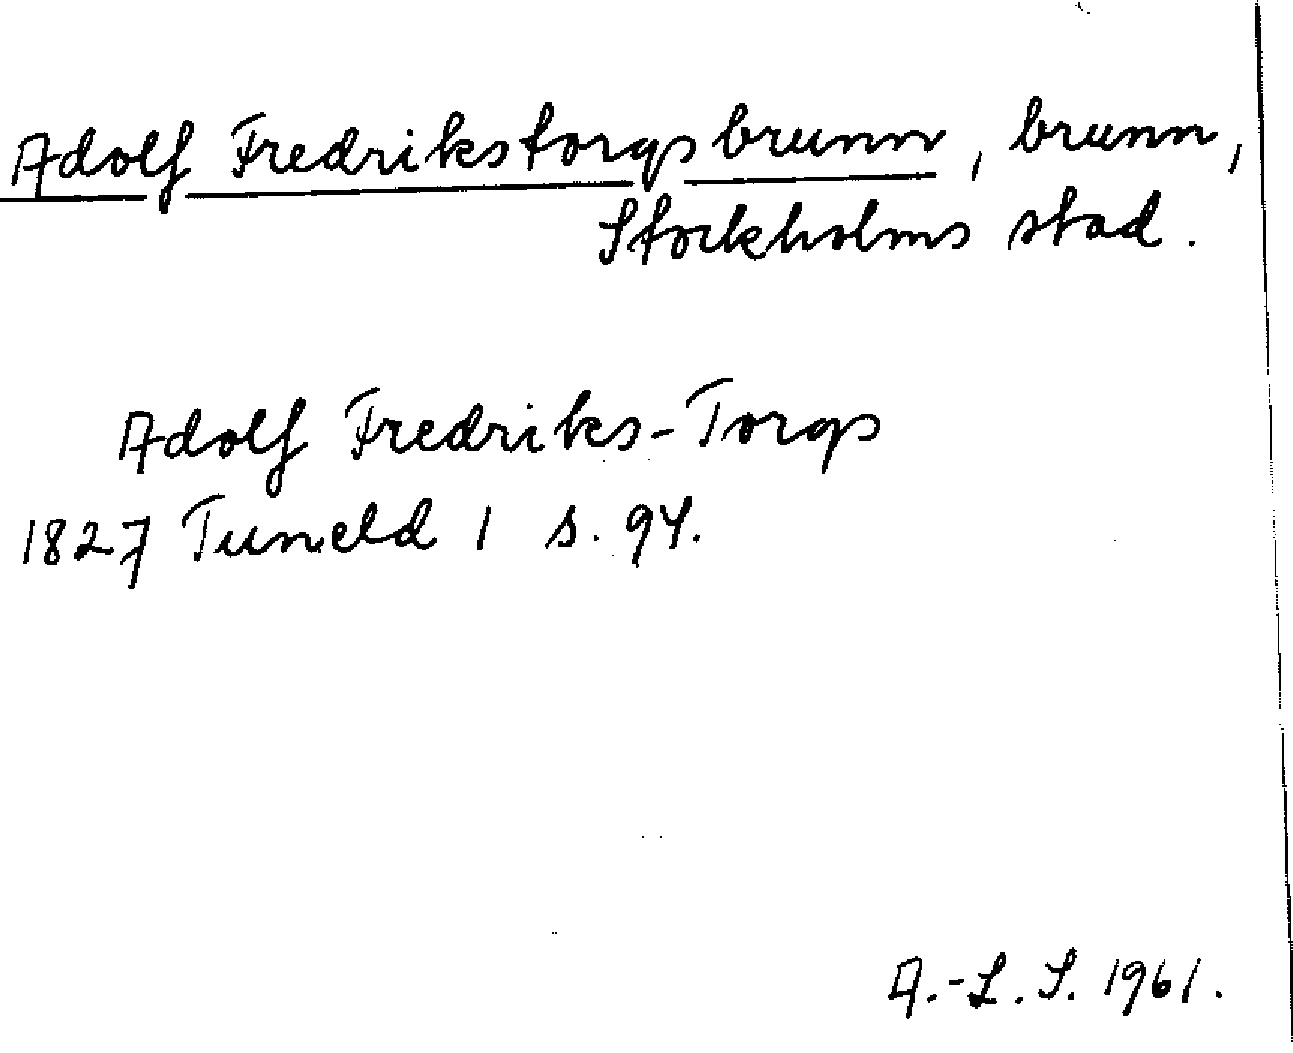 Adolf Fredrikstorgsbrunn, brunn,
Stockholms stad.
Adolf Fredriks-Torgs
1827 Tuneld 1 s. 94.
A.-L. S. 1961.